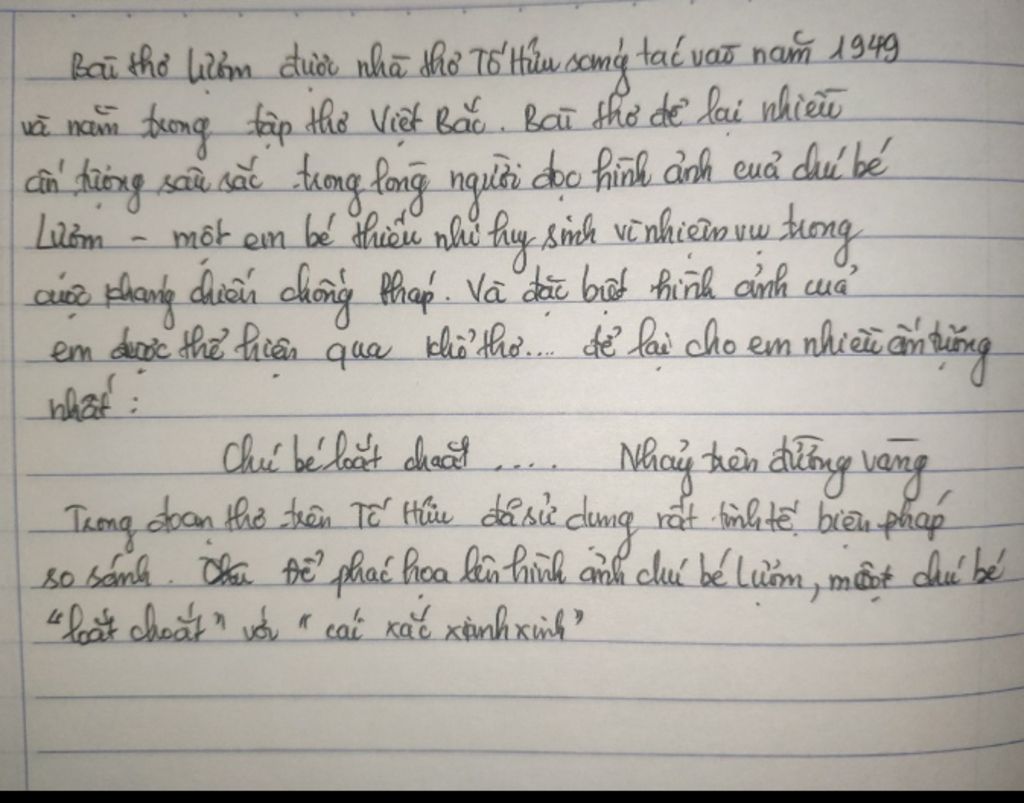 Bài thơ Lượm được nhà thơ Tố Hữu sáng tác vào năm 1949
và nằm trong tập thơ Việt Bắc. Bài thơ để lại nhiều
ấn tượng sâu sắc trong lòng người đọc hình ảnh của chú bé
Lượm - một em bé thiếu nhi hy sinh vì nhiệm vụ trong
cuộc kháng chiến chống Pháp. Và đặc biệt hình ảnh của
em được thể hiện qua khổ thơ.... để lại cho em nhiều ấn tượng
nhất :
Chú bé loắt choắt .... Nhảy trên đường vàng
Trong đoạn thơ trên Tố Hữu đã sử dụng rất tinh tế biện pháp
so sánh. Để phác họa lên hình ảnh chú bé Lượm, một chú bé
"loắt choắt" với "cái xắc xinh xinh"